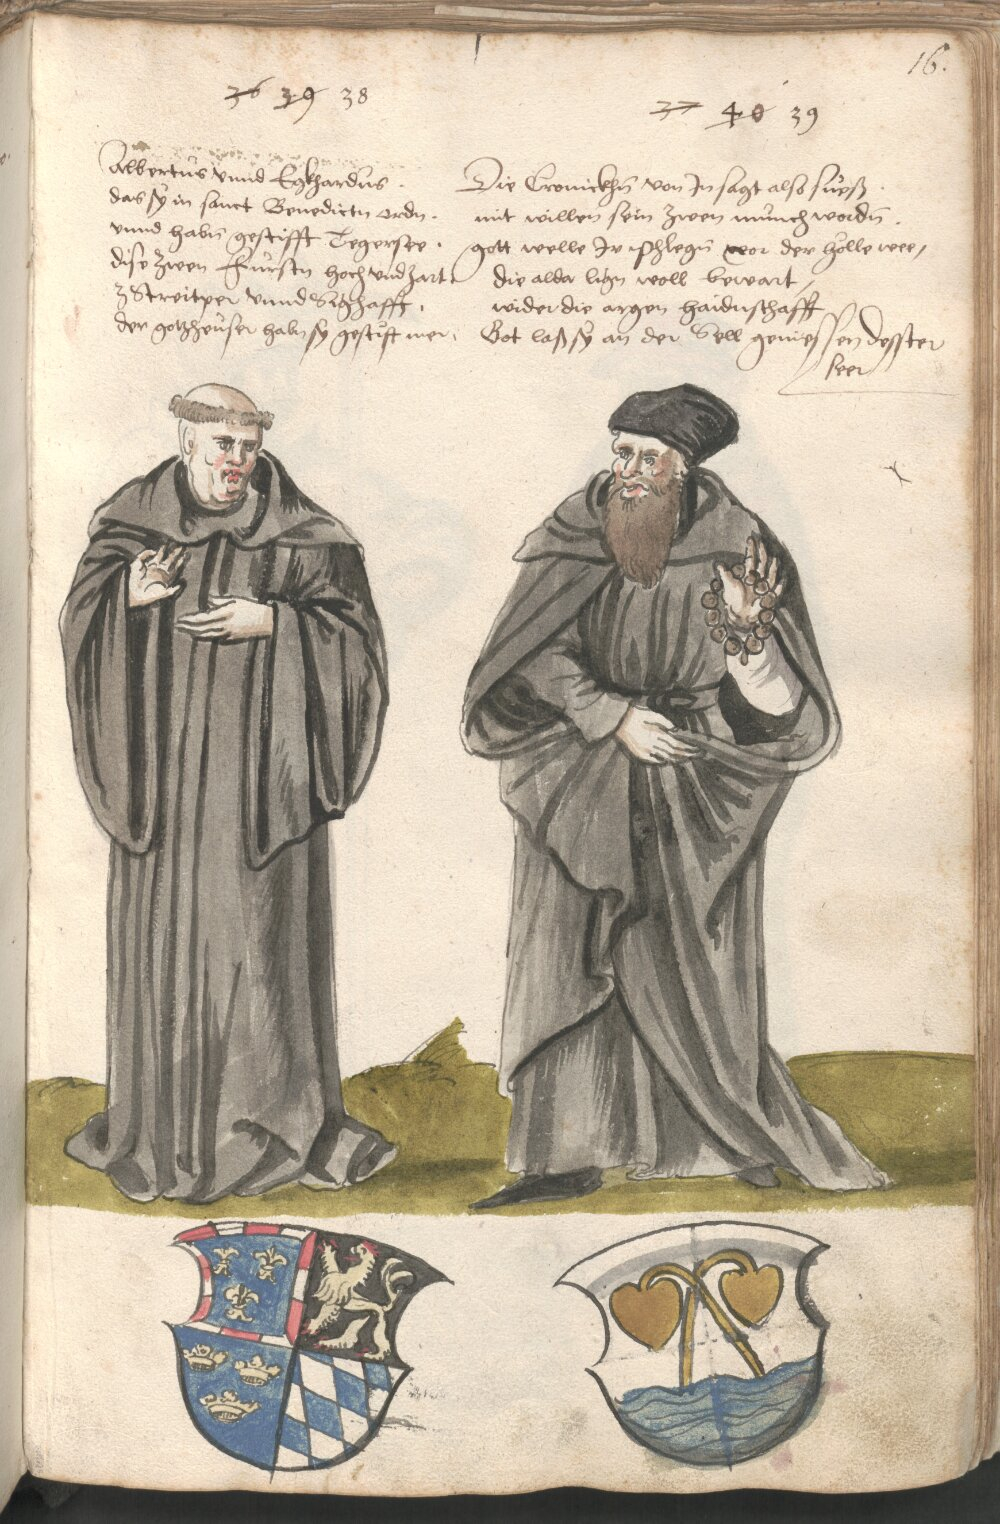 16.
36 39 38
37 40 39
Albertus vnnd Eckhardus.
das sy in sanct Benedictn ordn.
vnnd habn gestifft Tegersee.
dise zwen Fürstn hoch vnd zart.
z Streitper vnnd
der gotzheuser habn sy gestifft mer.
Die Cronickhn von In sagt also süess.
mit willen sein zwen münch wordn.
gott welle Ir pflegn vor der hölle wee,
die alda lign woll bewart,
wider die argen haidnschafft
Got lass sy an der Sell geniessen desster
seer